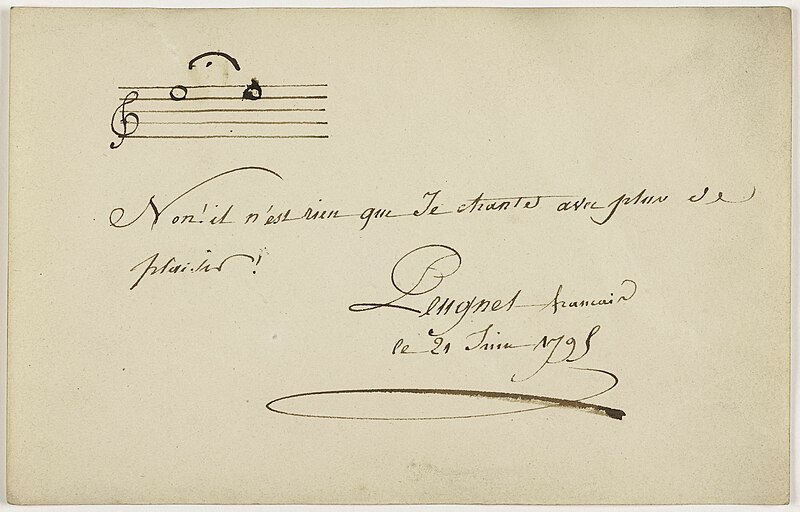 Non! il n'est rien que Je chante avec plus de
plaisir!
Peugnet francais
le 21 Juin 1795